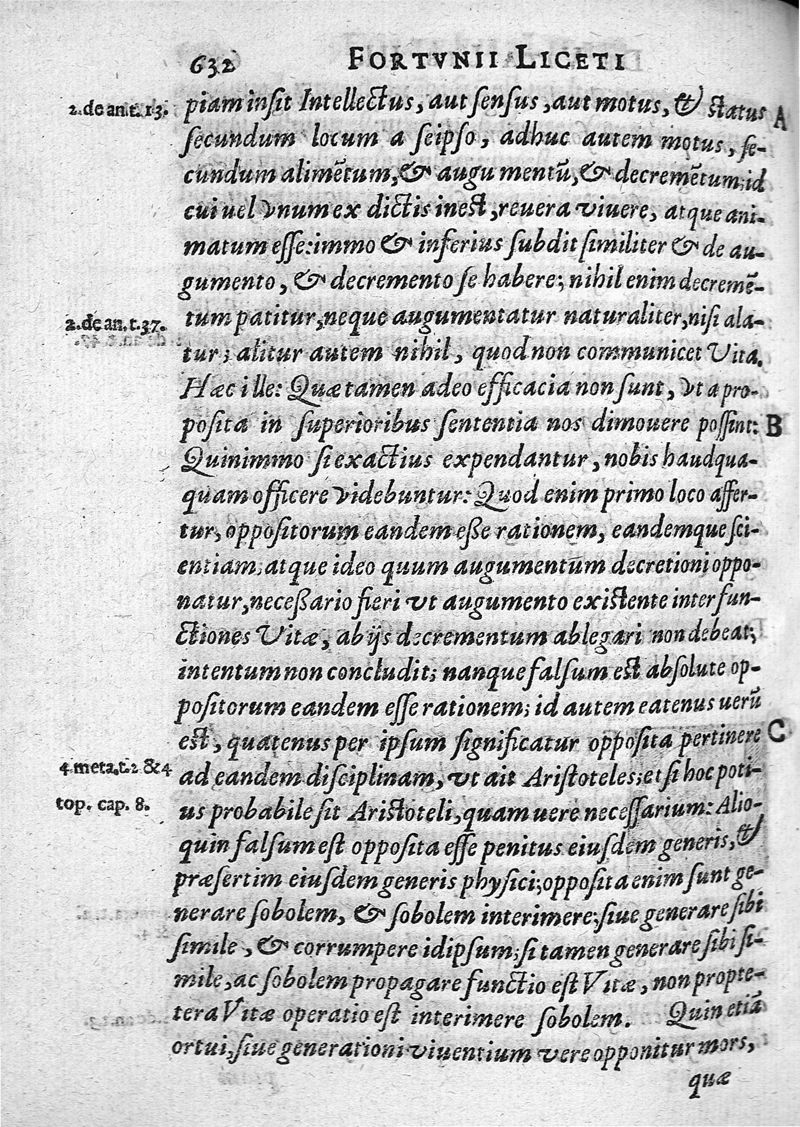 632 FORTVNII LICETI
2. de an. t. 13. piam insit Intellectus, aut sensus, aut motus, & status A
secundum locum a seipso, adhuc autem motus, se-
cundum alimētum, & augumentū, & decremētum; id
cui uel vnum ex dictis inest, reuera viuere, atque ani-
matum esse: immo & inferius subdit similiter & de au-
gumento, & decremento se habere; nihil enim decremē-
2. de an. t. 37. tum patitur, neque augumentatur naturaliter, nisi ala-
tur; alitur autem nihil, quod non communicet Vita.
Hæc ille: Quæ tamen adeo efficacia non sunt, vt a pro-
posita in superioribus sententia nos dimouere possint: B
Quinimmo si exactius expendantur, nobis haudqua-
quam officere videbuntur: Quod enim primo loco affer-
tur, oppositorum eandem eße rationem, eandemque sci-
entiam; atque ideo quum augumentum decretioni oppo-
natur, neceßario fieri vt augumento existente inter fun-
ctiones Vitæ, ab ijs decrementum ablegari non debeat;
intentum non concludit; nanque falsum est absolute op-
positorum eandem esse rationem; id autem eatenus uerū
est, quatenus per ipsum significatur opposita pertinere C
4 meta. t. 2 & 4 ad eandem disciplinam, vt ait Aristoteles; etsi hoc poti-
top. cap. 8. us probabile sit Aristoteli, quam uere necessarium: Alio-
quin falsum est opposita esse penitus eiusdem generis, &
præsertim eiusdem generis physici; opposita enim sunt ge-
nerare sobolem, & sobolem interimere; siue generare sibi
simile, & corrumpere idipsum; si tamen generare sibi si-
mile, ac sobolem propagare functio est Vitæ, non propte-
rea Vitæ operatio est interimere sobolem. Quin etiā
ortui, siue generationi viuentium vere opponitur mors,
quæ